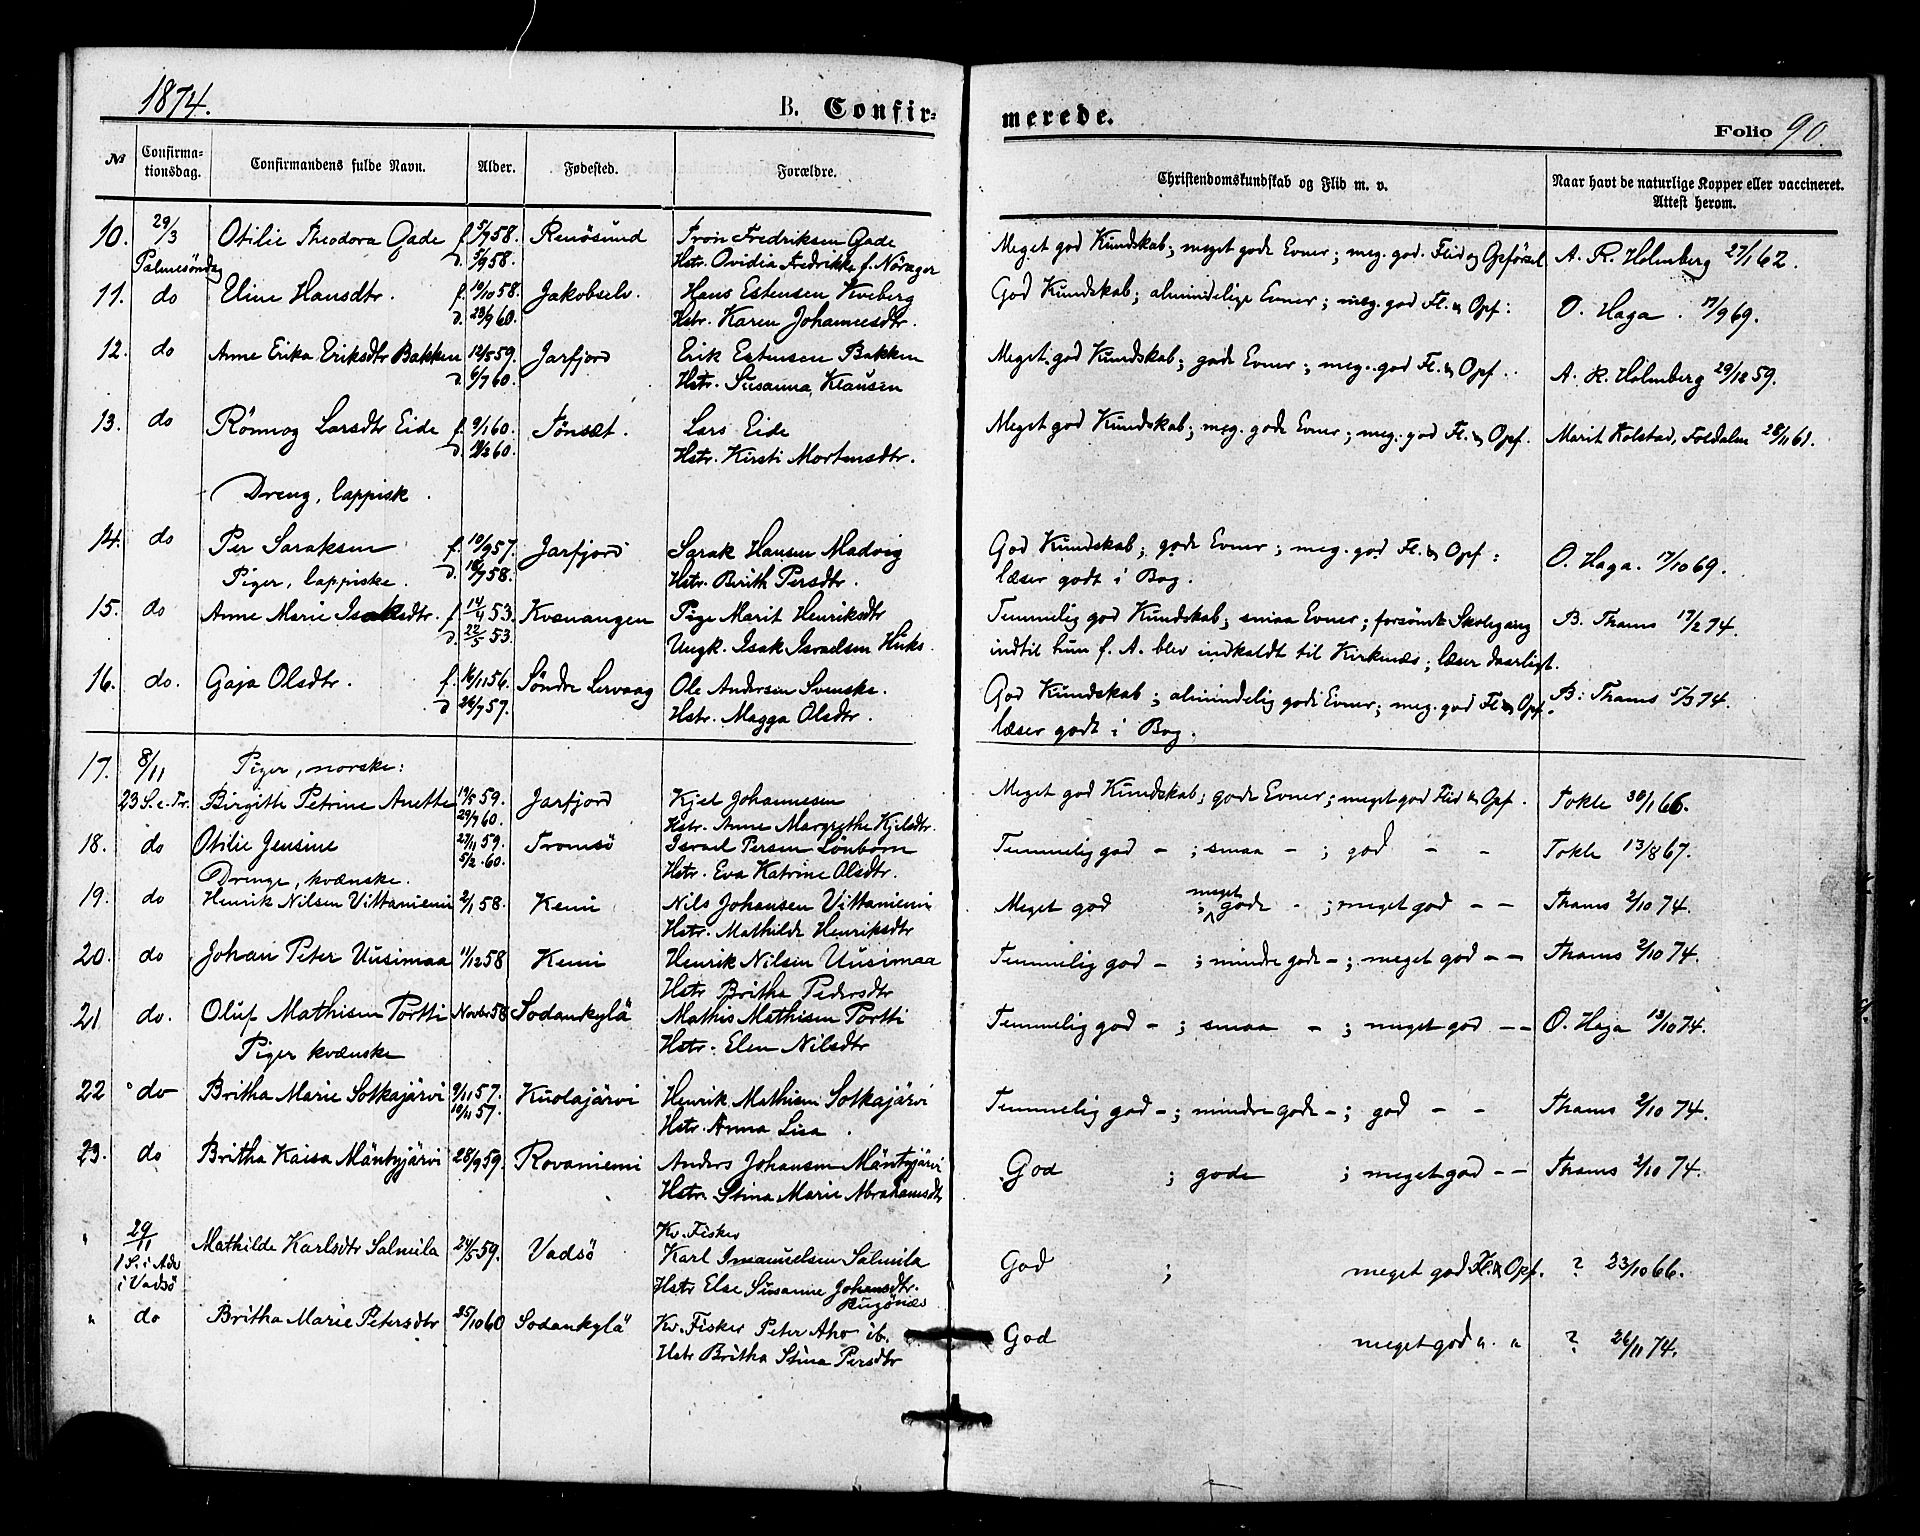 1874.
B. Confirmerede.
Folio 90.
№ Confirmationsdag. Confirmandens fulde Navn. Alder. Fødested. Forældre. Christendomskundskab og Flid m. v. Naar havt de naturlige Kopper eller vaccineret. Attest herom.
10. 29/3 Otilie Theodora Gade f. 5/7 58. Renösund Tron Fredriksen Gade Meget god Kundskab; meget gode Evner; meg. god. Flid og Opförsel A. R. Holmberg 27/1 62.
Palmesöndag d. 5/9 58. Hstr. Ovidia Fredrikke f. Noræger
11. do Eline Hansdtr. f. 19/10 58. Jakobselv. Hans Estensen Kveberg God Kundskab; almindelige Evner; meg. god Fl. & Opf: O. Haga. 17/9 69.
d. 23/9 60. Hstr. Karen Johannesdtr.
12. do Anne Erika Eriksdtr Bakken 12/5 59. Jarfjord Erik Estensen Bakken Meget god Kundskab; gode Evner; meg. god Fl. & Opf. A. R. Holmberg 29/12 59.
d. 6/7 60. Hstr. Susanna Klausen
13. do Rönnog Larsdtr Eide f. 9/1 60. Tönset. Lars Eide Meget god Kundskab; meg. gode Evner; meg. god Fl. & Opf. Marit Kolstad, Foldalen 28/11 61.
d. 19/2 60. Hstr. Kirsti Mortensdtr.
Dreng, lappisk.
14. do Per Saraksen f. 10/9 57. Jarfjord Sarak Hansen Madvig God Kundskab; gode Evner; meg. god Fl. & Opf: O. Haga. 17/10 69.
Piger, lappiske. d. 18/7 58. Hstr. Brith Persdtr. læser godt i Bog.
15. do Anne Marie Isaksdtr. f. 14/4 53. Kvænangen Pige Marit Henriksdtr Temmelig god Kundskab; smaa Evner; forsömt Skolegang B. Thams 17/2 74.
d. 22/5 53. Ungk. Isak Israelsen Huks. indtil hun f. A. blev indkaldt til Kirkenæs; læser daarligt.
16. do. Gaja Olsdtr. f. 16/11 56. Söndre Lervaag Ole Andersen Svenske. God Kundskab; almindelig gode Evner; meg. god Fl. & Opf. B. Thams 5/3 74.
d 26/7 57. Hstr. Magga Olsdtr. læser godt i Bog.
17. 8/11 Piger, norske:
23 S. e. Tr. Birgitte Petrine Anette 19/5 59. Jarfjord Kjel Johannesen Meget god Kundskab; gode Evner; meget god Flid & Opf. Tokle 30/1 66.
29/7 60. Hstr. Anne Margrethe Kjelsdtr.
18. do Otilie Jensine 27/11 59. Tromsö Israel Persen Lönborn Temmelig god - ; smaa - ; god - - Tokle 13/8 67.
5/2 60. Hstr. Eva Katrine Olsdtr.
Drenge, kvænske.
19. do Henrik Nilsen Vittaniemi 2/1 58. Kemi Nils Johansen Vittaniemi Meget god ; meget gode - ; meget god - - Thams 2/10 74.
Hstr. Mathilde Henriksdtr
20. do Johan Peter Uusimaa 11/12 58 Kemi Henrik Nilsen Uusimaa Temmelig god - ; mindre gode - ; meget god - - Thams 2/10 74.
Hstr Britha Pedersdtr
21 do. Oluf Mathisen Portti Novbr 58 Sodankylä Mathis Mathisen Portti Temmelig god - ; smaa - ; meget god - - O. Haga 13/10 74.
Piger kvænske Hstr. Elen Nilsdtr
22 do Britha Marie Sotkajärvi 9/11 57. Kuolajärvi Henrik Mathisen Sotkajärvi Temmelig god - ; mindre gode - ; god - - Thams 2/10 74.
10/11 57. Hstr. Anna Lisa.
23. do Britha Kaisa Mäntyjärvi 28/9 59. Rovaniemi Anders Johansen Mäntyjärvi God ; gode ; meget god - - Thams 2/10 74.
Hstr. Stina Marie Abrahamsdtr
" 29/11 Mathilde Karlsdtr Salmila 24/5 59. Vadsö Kv. Fisker
1 S. i Adv. i Vadsö Karl Imanuelsen Salmila God ; meget god Fl. & Opf. ? 23/10 66.
Hstr Else Susanne Johansdtr.
Bugönæs
" do Britha Marie Petersdtr 25/10 60 Sodankylä Kv. Fisker Peter Aho ib. God meget god " " ? 26/11 74.
Hstr Britha Stina Persdtr